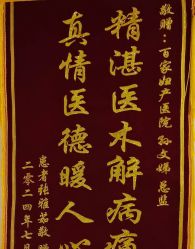 敬赠：百家妇产医院 孙文娣 总监
精湛医术解病痛
真情医德暖人心
患者张雅茹敬赠
二零二四年七月